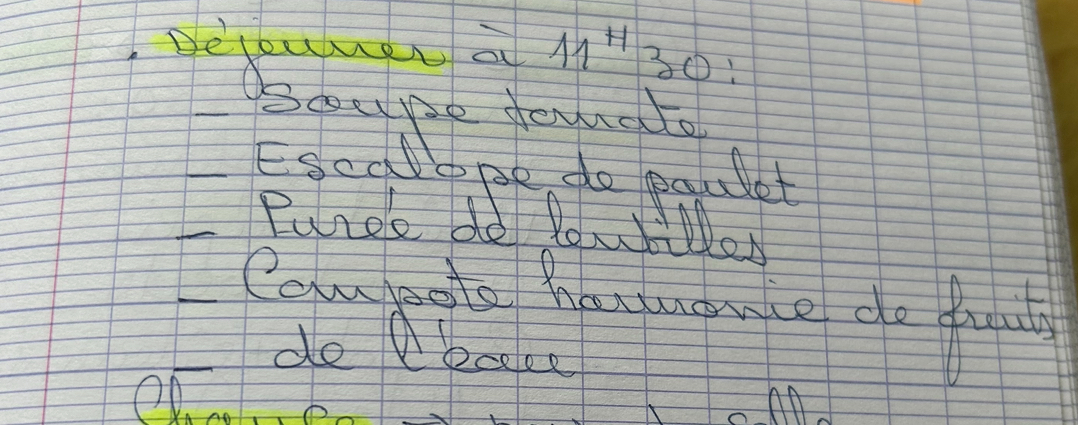 . Déjeuner à 11H30 :
– Soupe tomate
– Escalope de poulet
– Purée de lentilles
– Compote harmonie de fruits
– de l'eau